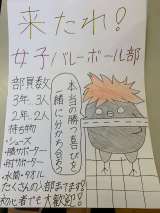 来たれ!
女子バレーボール部
部員数
3年、3人
2年、2人
持ち物
・シューズ
・膝サポーター
・肘サポーター
・水筒・タオル
本当の勝つ喜びを
一緒に分かち合おう
たくさんの入部まってます!
初心者でも大歓迎!